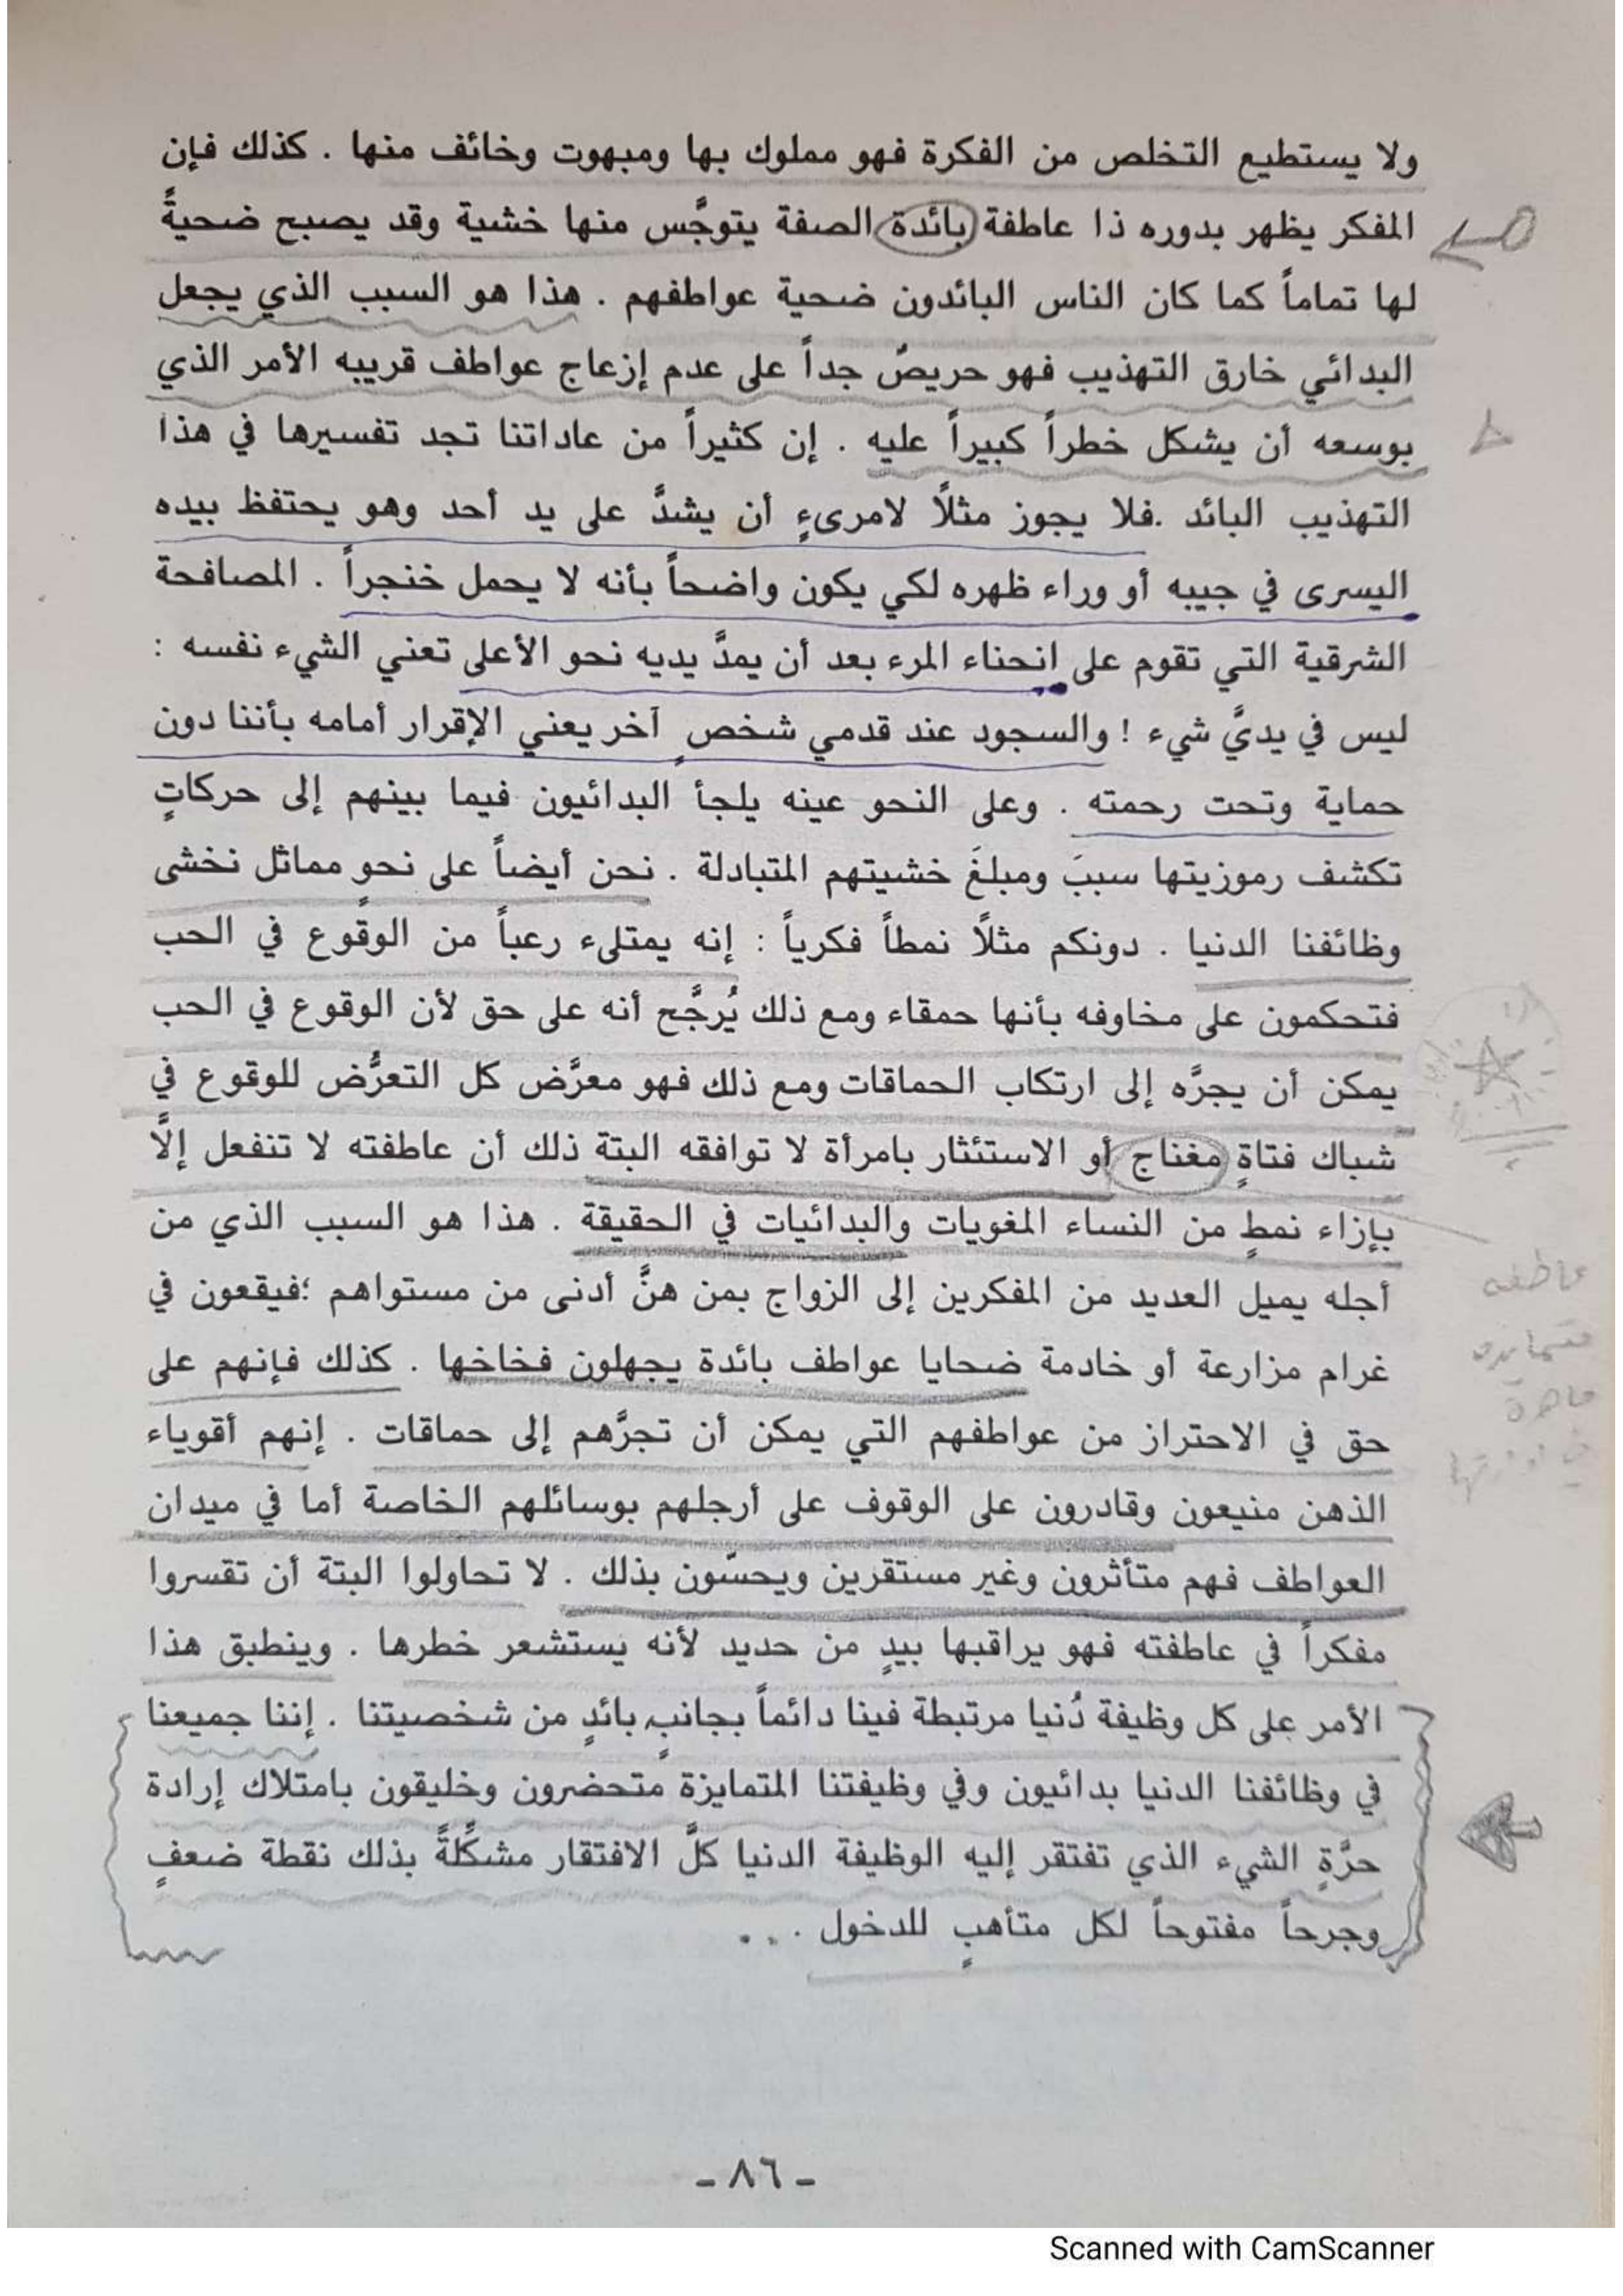 ولا يستطيع التخلص من الفكرة فهو مملوك بها ومبهوت وخائف منها . كذلك فإن
المفكر يظهر بدوره ذا عاطفة بائدة الصفة يتوجَّس منها خشية وقد يصبح ضحيةً
لها تماماً كما كان الناس البائدون ضحية عواطفهم . هذا هو السبب الذي يجعل
البدائي خارق التهذيب فهو حريصٌ جداً على عدم إزعاج عواطف قريبه الأمر الذي
بوسعه أن يشكل خطراً كبيراً عليه . إن كثيراً من عاداتنا تجد تفسيرها في هذا
التهذيب البائد .فلا يجوز مثلًا لامرىءٍ أن يشدَّ على يد أحد وهو يحتفظ بيده
اليسرى في جيبه أو وراء ظهره لكي يكون واضحاً بأنه لا يحمل خنجراً . المصافحة
الشرقية التي تقوم على انحناء المرء بعد أن يمدَّ يديه نحو الأعلى تعني الشيء نفسه :
ليس في يديَّ شيء ! والسجود عند قدمي شخصٍ آخر يعني الإقرار أمامه بأننا دون
حماية وتحت رحمته . وعلى النحو عينه يلجأ البدائيون فيما بينهم إلى حركاتٍ
تكشف رموزيتها سببَ ومبلغَ خشيتهم المتبادلة . نحن أيضاً على نحوٍ مماثل نخشى
وظائفنا الدنيا . دونكم مثلًا نمطاً فكرياً : إنه يمتلىء رعباً من الوقوع في الحب
فتحكمون على مخاوفه بأنها حمقاء ومع ذلك يُرجَّح أنه على حق لأن الوقوع في الحب
يمكن أن يجرَّه إلى ارتكاب الحماقات ومع ذلك فهو معرَّض كل التعرُّض للوقوع في
شباك فتاةٍ مغناج أو الاستئثار بامرأة لا توافقه البتة ذلك أن عاطفته لا تنفعل إلَّا
بإزاء نمطٍ من النساء المغويات والبدائيات في الحقيقة . هذا هو السبب الذي من
أجله يميل العديد من المفكرين إلى الزواج بمن هنَّ أدنى من مستواهم ؛فيقعون في
غرام مزارعة أو خادمة ضحايا عواطف بائدة يجهلون فخاخها . كذلك فإنهم على
حق في الاحتراز من عواطفهم التي يمكن أن تجرَّهم إلى حماقات . إنهم أقوياء
الذهن منيعون وقادرون على الوقوف على أرجلهم بوسائلهم الخاصة أما في ميدان
العواطف فهم متأثرون وغير مستقرين ويحسّون بذلك . لا تحاولوا البتة أن تقسروا
مفكراً في عاطفته فهو يراقبها بيدٍ من حديد لأنه يستشعر خطرها . وينطبق هذا
الأمر على كل وظيفة دُنيا مرتبطة فينا دائماً بجانبٍ بائدٍ من شخصيتنا . إننا جميعنا
في وظائفنا الدنيا بدائيون وفي وظيفتنا المتمايزة متحضرون وخليقون بامتلاك إرادة
حرَّةٍ الشيء الذي تفتقر إليه الوظيفة الدنيا كلَّ الافتقار مشكِّلةً بذلك نقطة ضعفٍ
وجرحاً مفتوحاً لكل متأهبٍ للدخول . . .
عاطفه
متمايزه
ماهرة
- ٨٦ -
Scanned with CamScanner